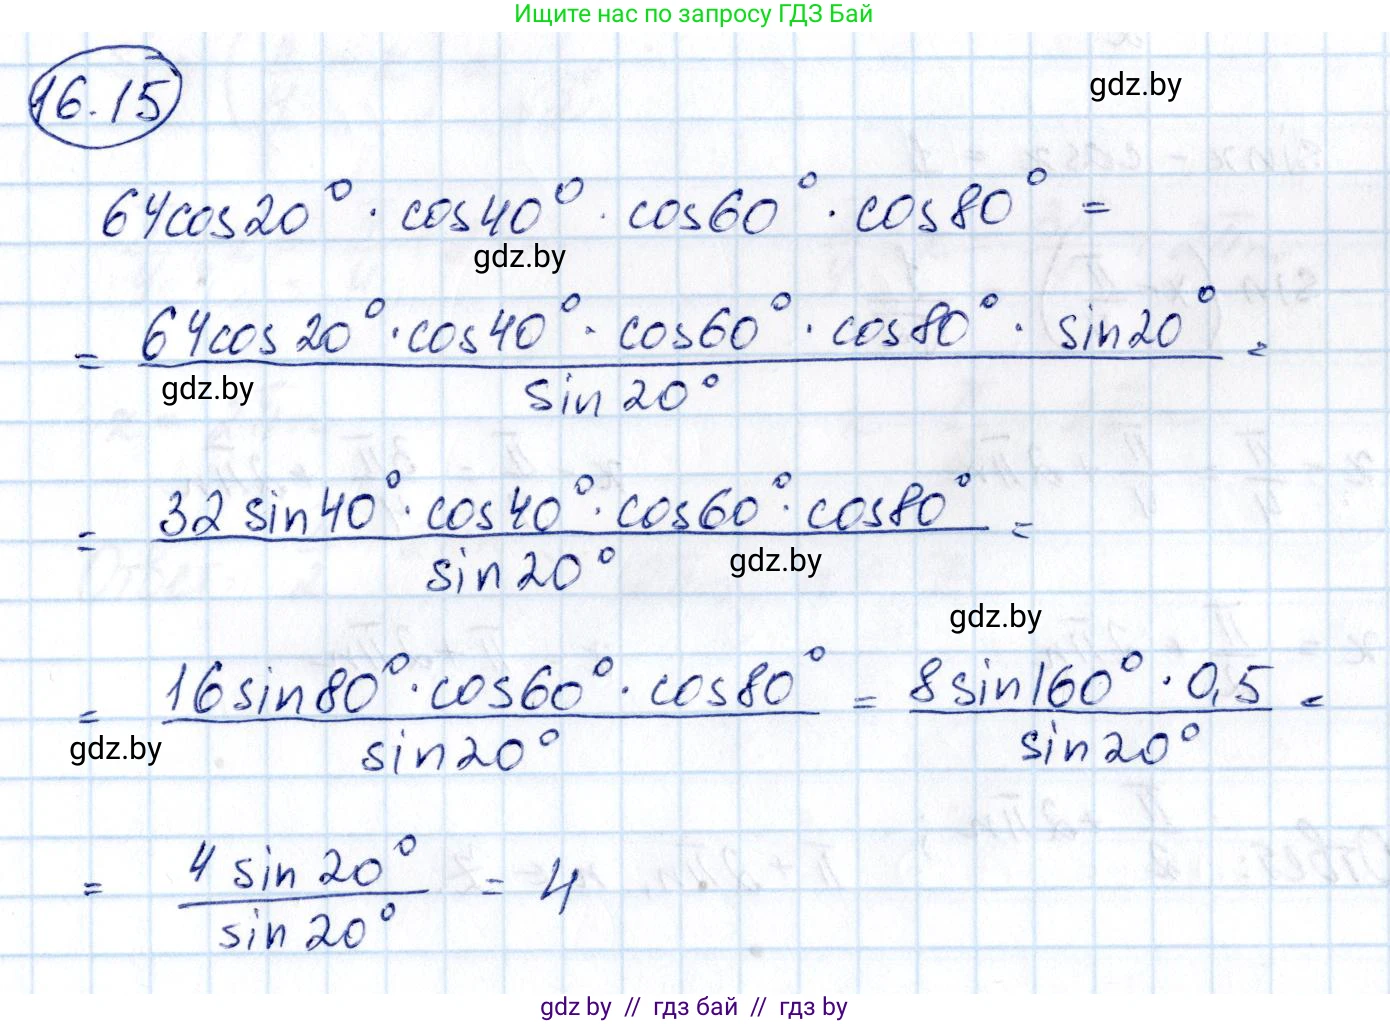 Ищите нас по запросу ГДЗ Бай
16.15
gdz.by
64cos20° · cos40° · cos60° · cos80° =
gdz.by
= 64cos20° · cos40° · cos60° · cos80° · sin20° / sin20° =
gdz.by
= 32 sin40° · cos40° · cos60° · cos80° / sin20° =
gdz.by
gdz.by
= 16sin80° · cos60° · cos80° / sin20° = 8sin160° · 0,5 / sin20° =
gdz.by
= 4 sin20° / sin20° = 4
gdz.by // гдз бай // гдз by